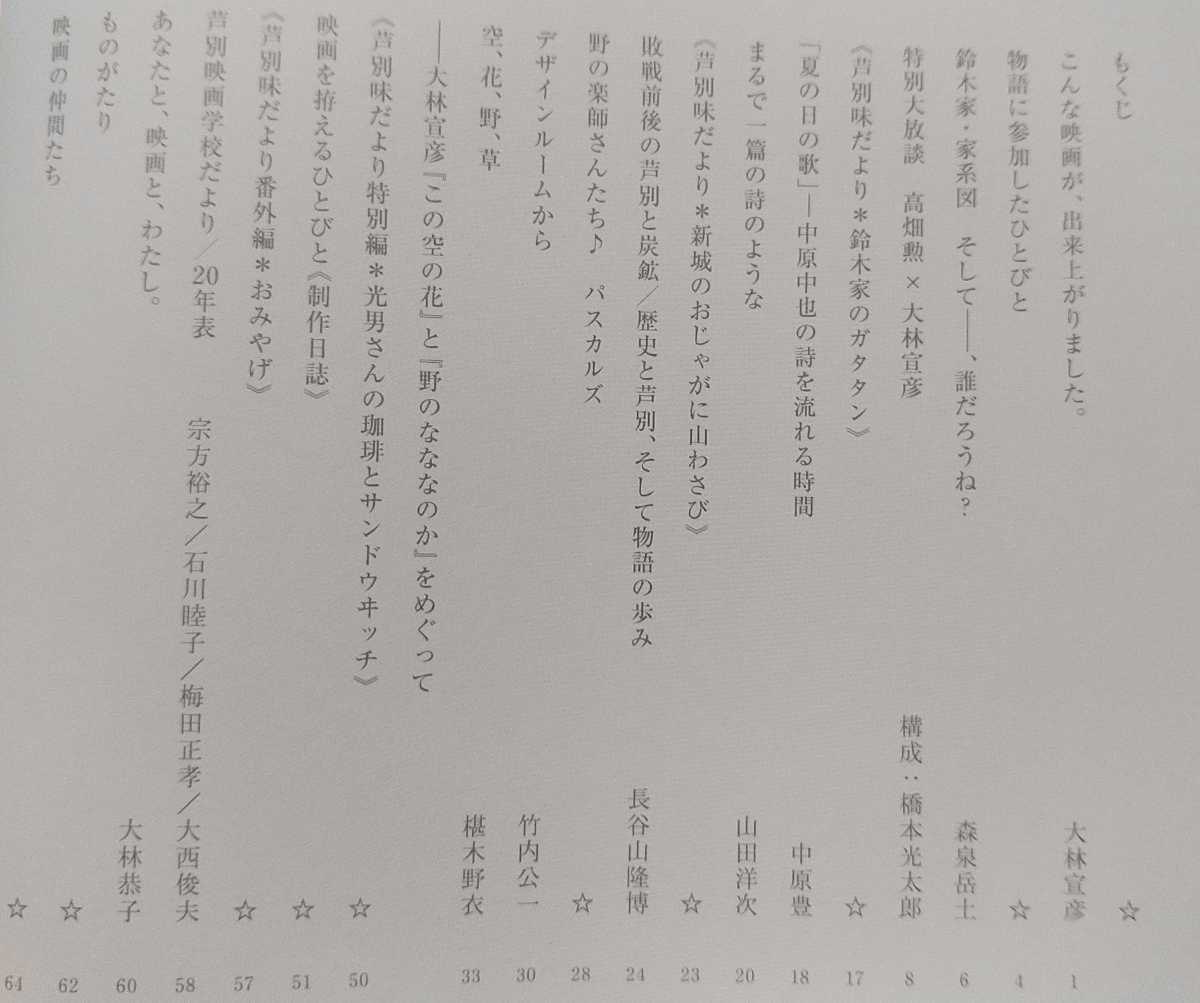 もくじ ☆
こんな映画が、出来上がりました。 大林宣彦 1
物語に参加したひとびと ☆ 4
鈴木家・家系図 そして――、誰だろうね? 森泉岳士 6
特別大放談 高畑勲 × 大林宣彦 構成:橋本光太郎 8
《芦別味だより*鈴木家のガタタン》 ☆ 17
「夏の日の歌」―中原中也の詩を流れる時間 中原豊 18
まるで一篇の詩のような 山田洋次 20
《芦別味だより*新城のおじゃがに山わさび》 ☆ 23
敗戦前後の芦別と炭鉱/歴史と芦別、そして物語の歩み 長谷山隆博 24
野の楽師さんたち♪ パスカルズ ☆ 28
デザインルームから 竹内公一 30
空、花、野、草 椹木野衣 33
――大林宣彦『この空の花』と『野のなななのか』をめぐって
《芦別味だより特別編*光男さんの珈琲とサンドウヰッチ》 ☆ 50
映画を拵えるひとびと《制作日誌》 ☆ 51
《芦別味だより番外編*おみやげ》 ☆ 57
芦別映画学校だより/20年表 宗方裕之/石川睦子/梅田正孝/大西俊夫 58
あなたと、映画と、わたし。 大林恭子 60
ものがたり ☆ 62
映画の仲間たち ☆ 64